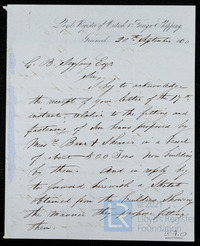 Lloyd's Register of British & Foreign Shipping
20th September
G. B. Seyfang Esqre
Sir,
I beg to acknowledge
the receipt of your letter of the 17th
instant, relative to the fitting and
fastening of the beams proposed by
Messrs Barr & Shearer in a vessel
of about 500 Tons now building
by them. And in reply by
to forward herewith a Sketch
obtained from the builders showing
the manner they propose fitting
them.
Lloyd's Register
Foundation